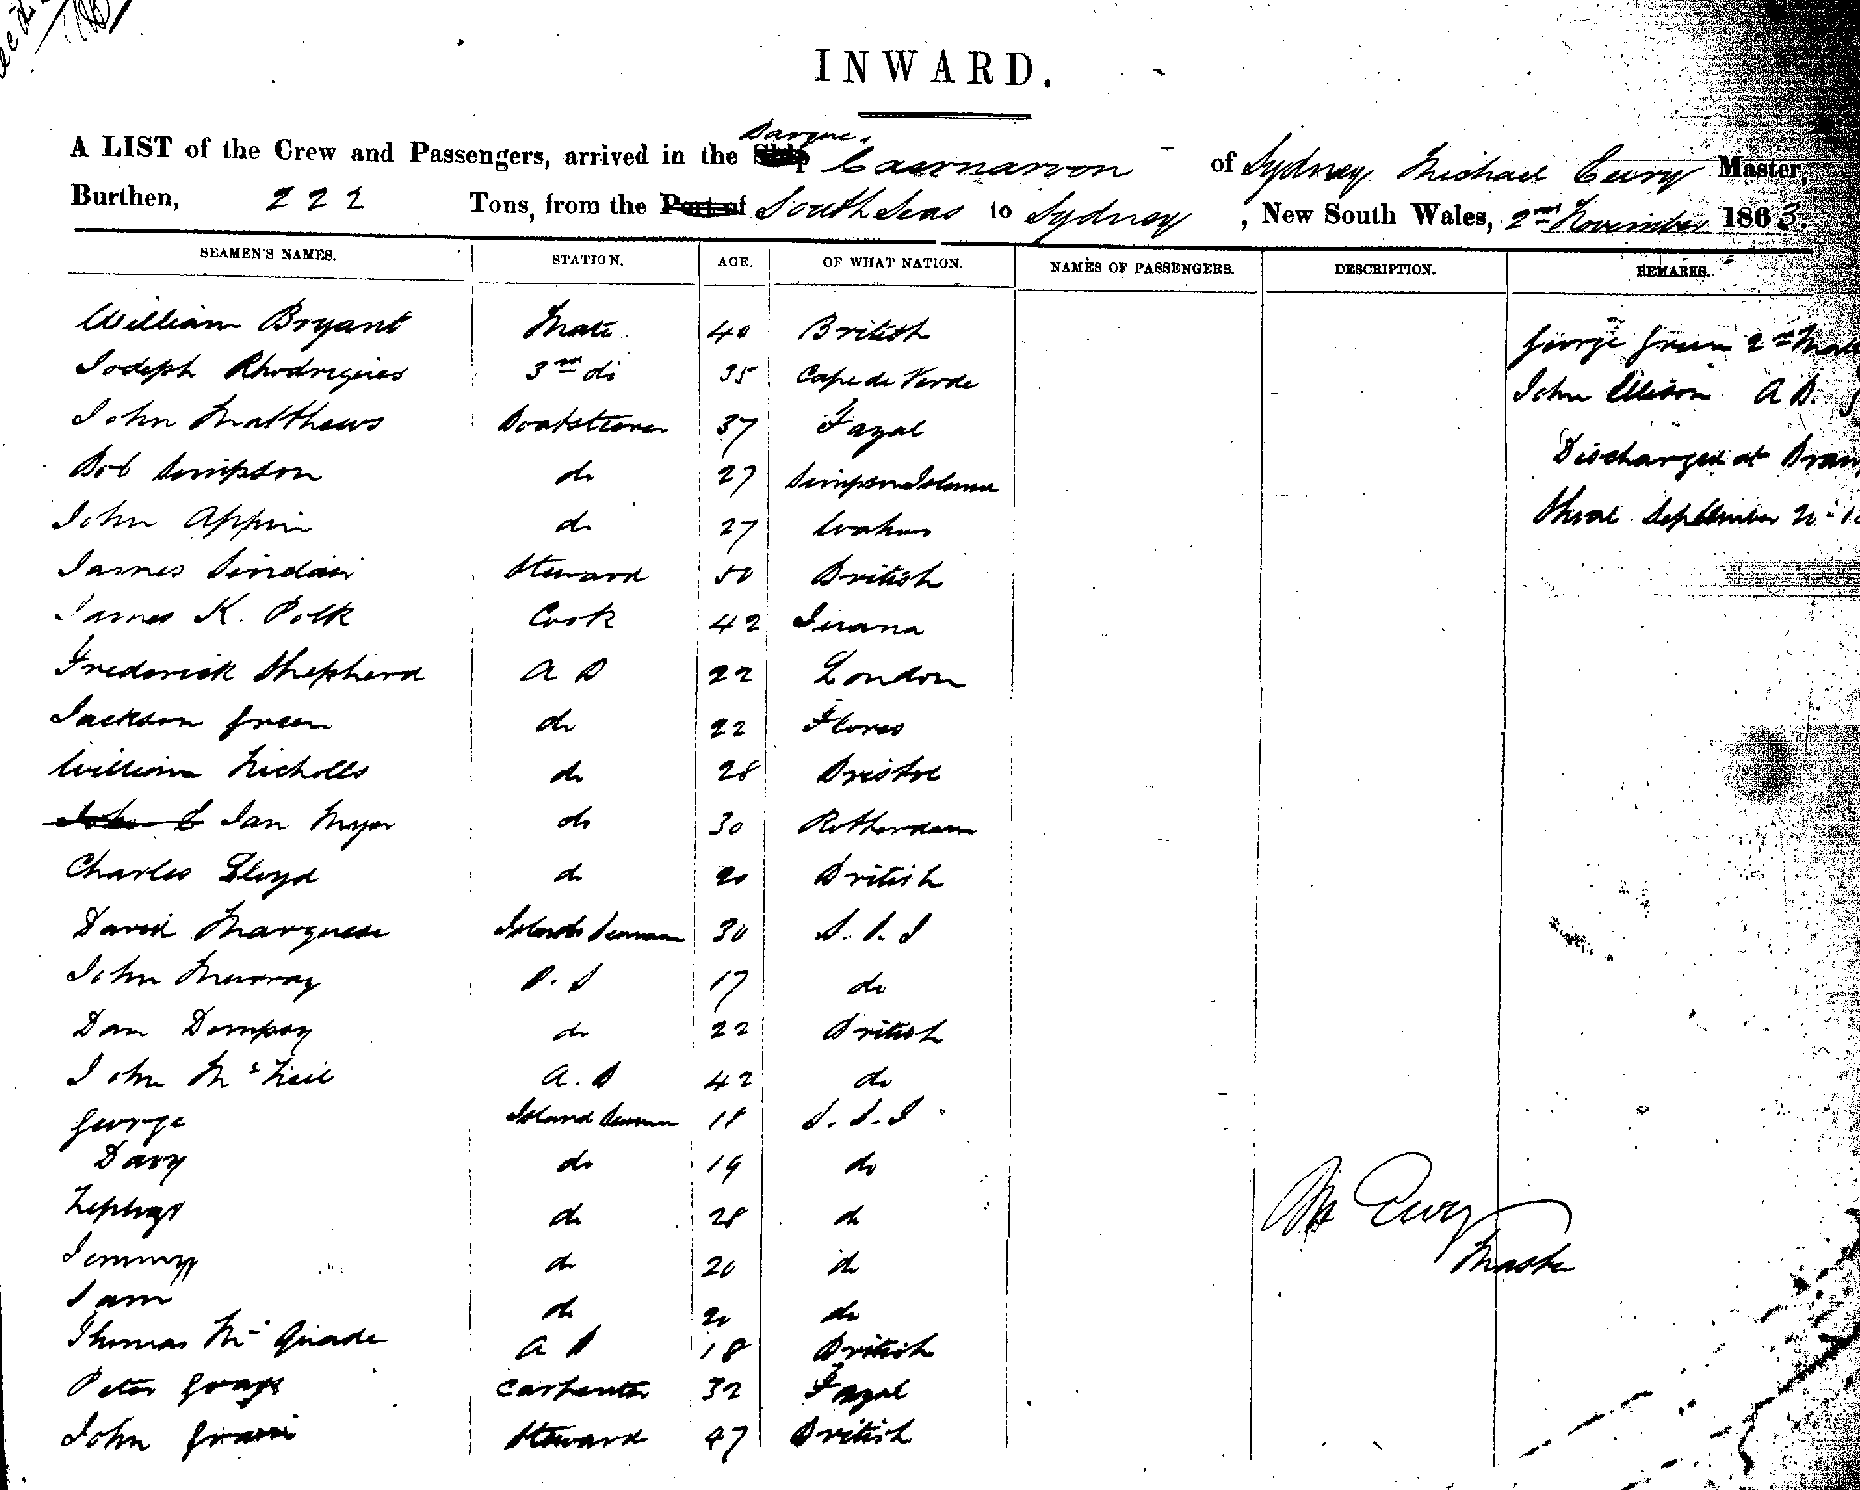 INWARD.
Barque
A LIST of the Crew and Passengers, arrived in the Ship Caernarvon of Sydney Michael Evry Master,
Burthen, 222 Tons, from the Port of South Seas to Sydney, New South Wales, 2nd November 1863.
SEAMEN'S NAMES. STATION. AGE. OF WHAT NATION. NAMES OF PASSENGERS. DESCRIPTION. REMARKS.
William Bryant Mate 40 British George Green 2nd Mate
Joseph Rhodrigues 3rd do 35 Cape de Verde John Ellison A B
John Matthews Boatsteerer 37 Fayal
Discharged at
Bob Simpson do 27 Simpson Island
John Appin do 27 September
James Sinclair Steward 50 British
James K. Polk Cook 42
Frederick Shepherd A B 22 London
Jackson Green do 22 Flores
William Nicholls do 28 Bristol
Jan Myer do 30 Rotterdam
Charles Lloyd do 20 British
David Marquese Islands Seaman 30 S. S. I
John Murray O. S 17 do
Dan Dempsy do 22 British
John McNeil A. B 42 do
George Island Seaman 18 S. S. I
Davy do 19 do
Zephyr do 28 do
M Evry
Jemmy do 20 do
Master
Sam do 20 do
Thomas Mc Quade A B 18 British
Peter Carpenter 32 Fayal
John Steward 47 British